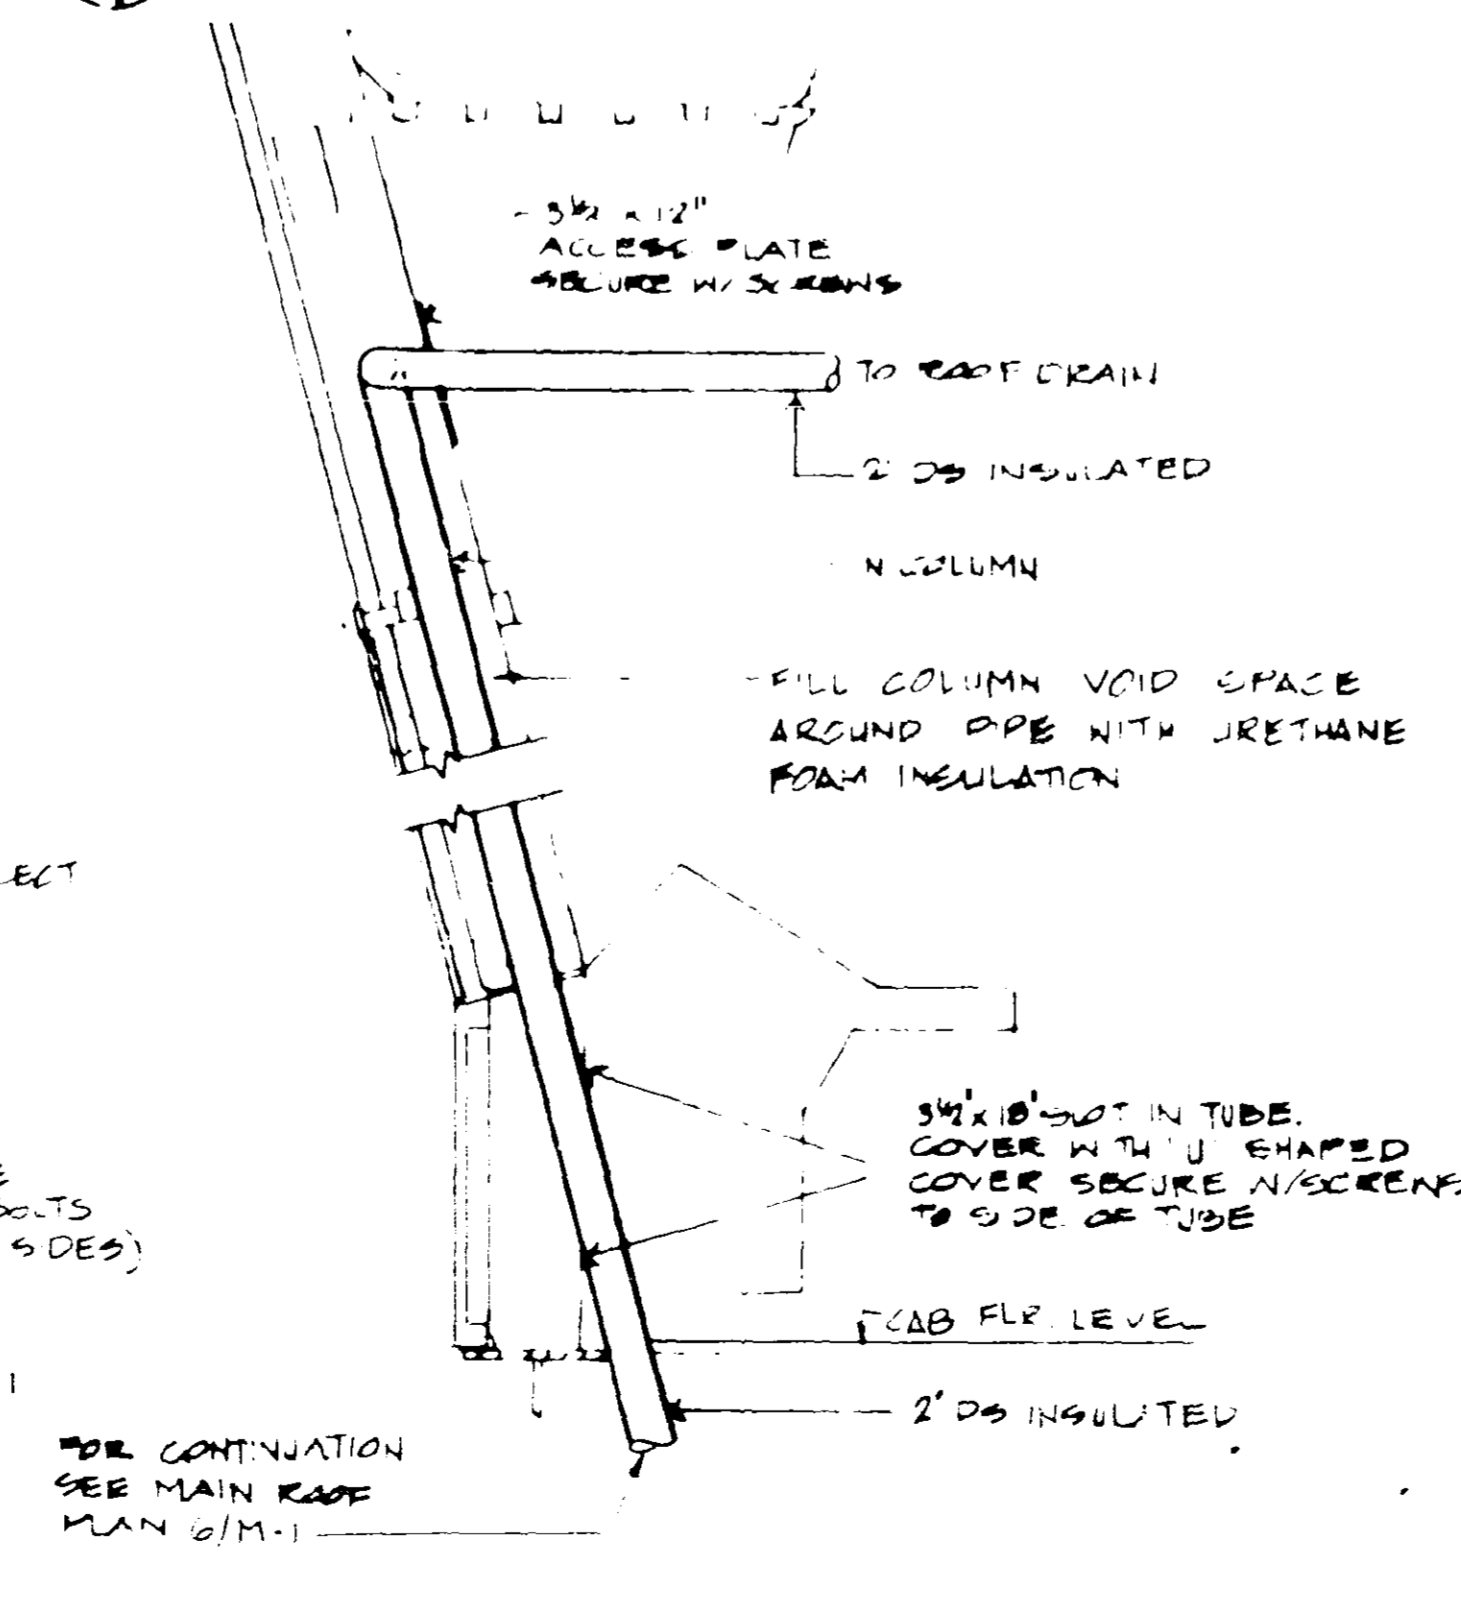 3 1/2 x 12"
ACCESS PLATE
SECURE W/ SCREWS
TO ROOF DRAIN
2" DS INSULATED
N COLUMN
FILL COLUMN VOID SPACE
AROUND PIPE WITH URETHANE
FOAM INSULATION
ECT
3 1/2" x 18" SLOT IN TUBE.
COVER WITH 'U' SHAPED
COVER SECURE W/SCREWS
TO SIDE OF TUBE
E
BOLTS
SIDES)
CAB FLR. LEVEL
1
2" DS INSULATED
FOR CONTINUATION
SEE MAIN ROOF
PLAN 6/M-1